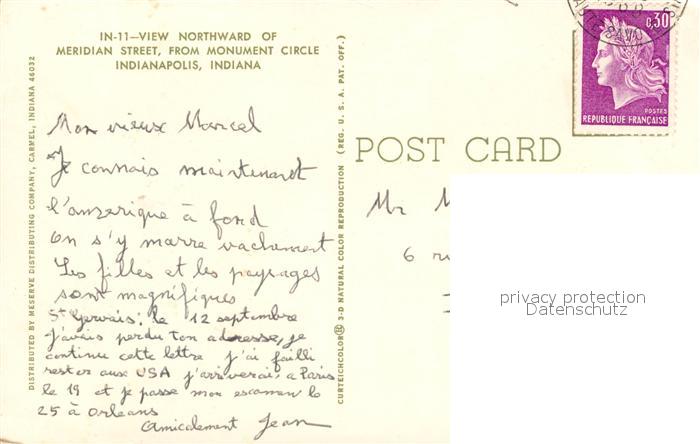 IN-11—VIEW NORTHWARD OF
MERIDIAN STREET, FROM MONUMENT CIRCLE
INDIANAPOLIS, INDIANA
DISTRIBUTED BY MESERVE DISTRIBUTING COMPANY, CARMEL, INDIANA 46032
Mon vieux Marcel
Je connais maintenant
l'amérique à fond
on s'y marre vachement
Les filles et les paysages
sont magnifiques
St Gervais: le 12 septembre
j'avais perdu ton adresse, je
continue cette lettre j'ai failli
rester aux USA j'arriverai à Paris
le 19 et je passe mon examen le
25 à Orléans
Amicalement Jean
CURTEICHCOLOR® 3-D NATURAL COLOR REPRODUCTION (REG. U.S.A. PAT. OFF.)
POST CARD
0,30
POSTES
REPUBLIQUE FRANÇAISE
Mr M
6 ru
privacy protection
Datenschutz